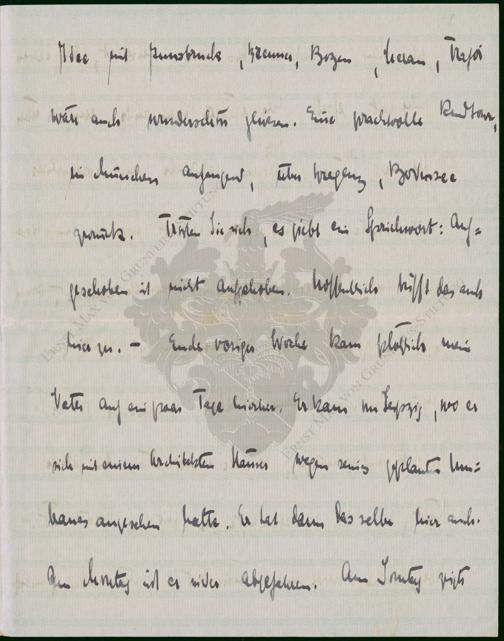 Idee mit Innsbruck, Brenner, Bozen, Meran, Trafoi
wär auch wunderschön gewesen. Eine prachtvolle Rundtour,
in München anfangend, über Bregenz, Bodensee
zurück. Trösten Sie sich, es giebt ein Sprichwort: Auf=
geschoben ist nicht aufgehoben. Hoffentlich trifft das auch
hier zu. – Ende voriger Woche kam plötzlich mein
Vater auf ein paar Tage hierher. Er kam von Leipzig, wo er
sich mit einem Architekten Häuser wegen seines geplanten Um=
baues angesehen hatte. Er tat dann dasselbe hier auch.
Am Montag ist er wieder abgefahren. Am Sonntag zeigte
ERNST MAX VON GRUNELIUS-STIFTUNG
ERNST MAX VON GRUNELIUS-STIFTUNG